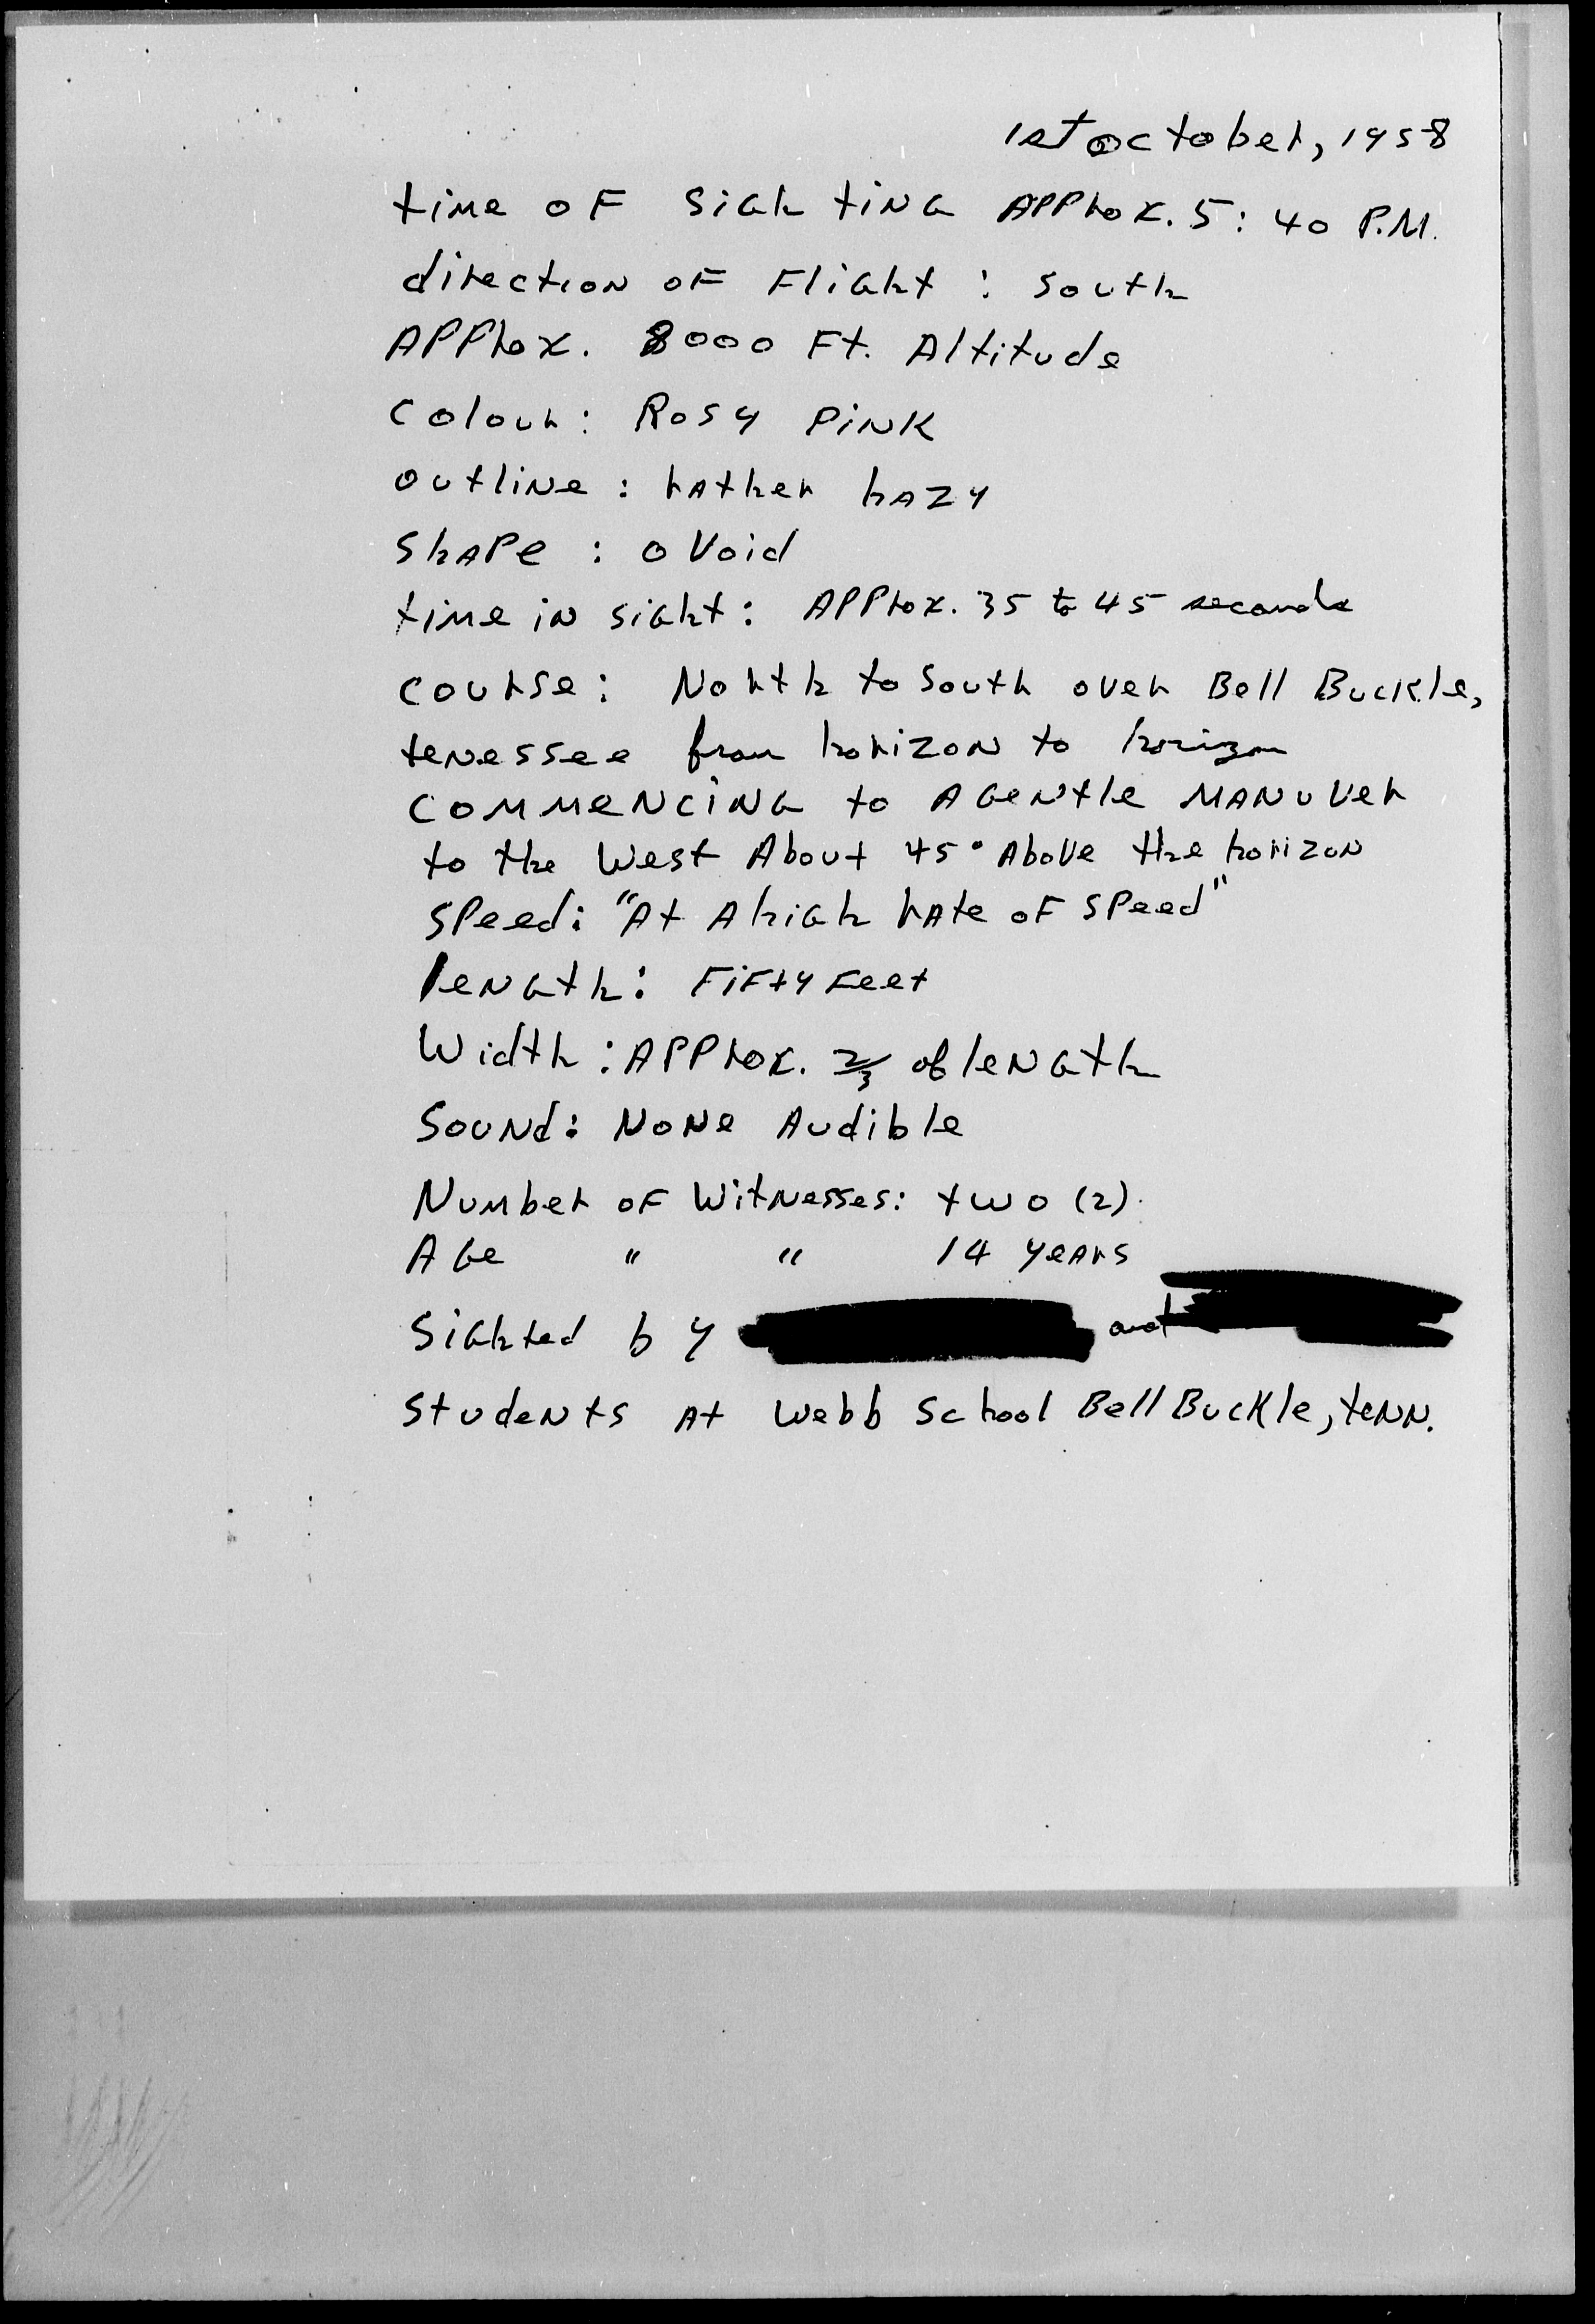 1st october, 1958
time oF SiGhtiNG APProx. 5:40 P.M.
direction oF Flight : South
APProx. 8000 Ft. Altitude
Colour: Rosy PiNK
outliNe : rather hAZy
ShAPe : oVoid
time iN siGht: APProx. 35 to 45 seconds
course: North to South over Bell Buckle,
tenessee from horiZoN to horizon
COMMeNCiNG to A GeNtle MANuver
to the West About 45° Above the horiZoN
SPeed: "At A hiGh rAte oF SPeed"
leNGth: FiFty Feet
Width : APProx. 2/3 of leNGth
SouNd: NoNe Audible
Number oF WitNesses: two (2).
AGe " " 14 yeArs
SiGhted by and
StudeNts At Webb School Bell Buckle, teNN.